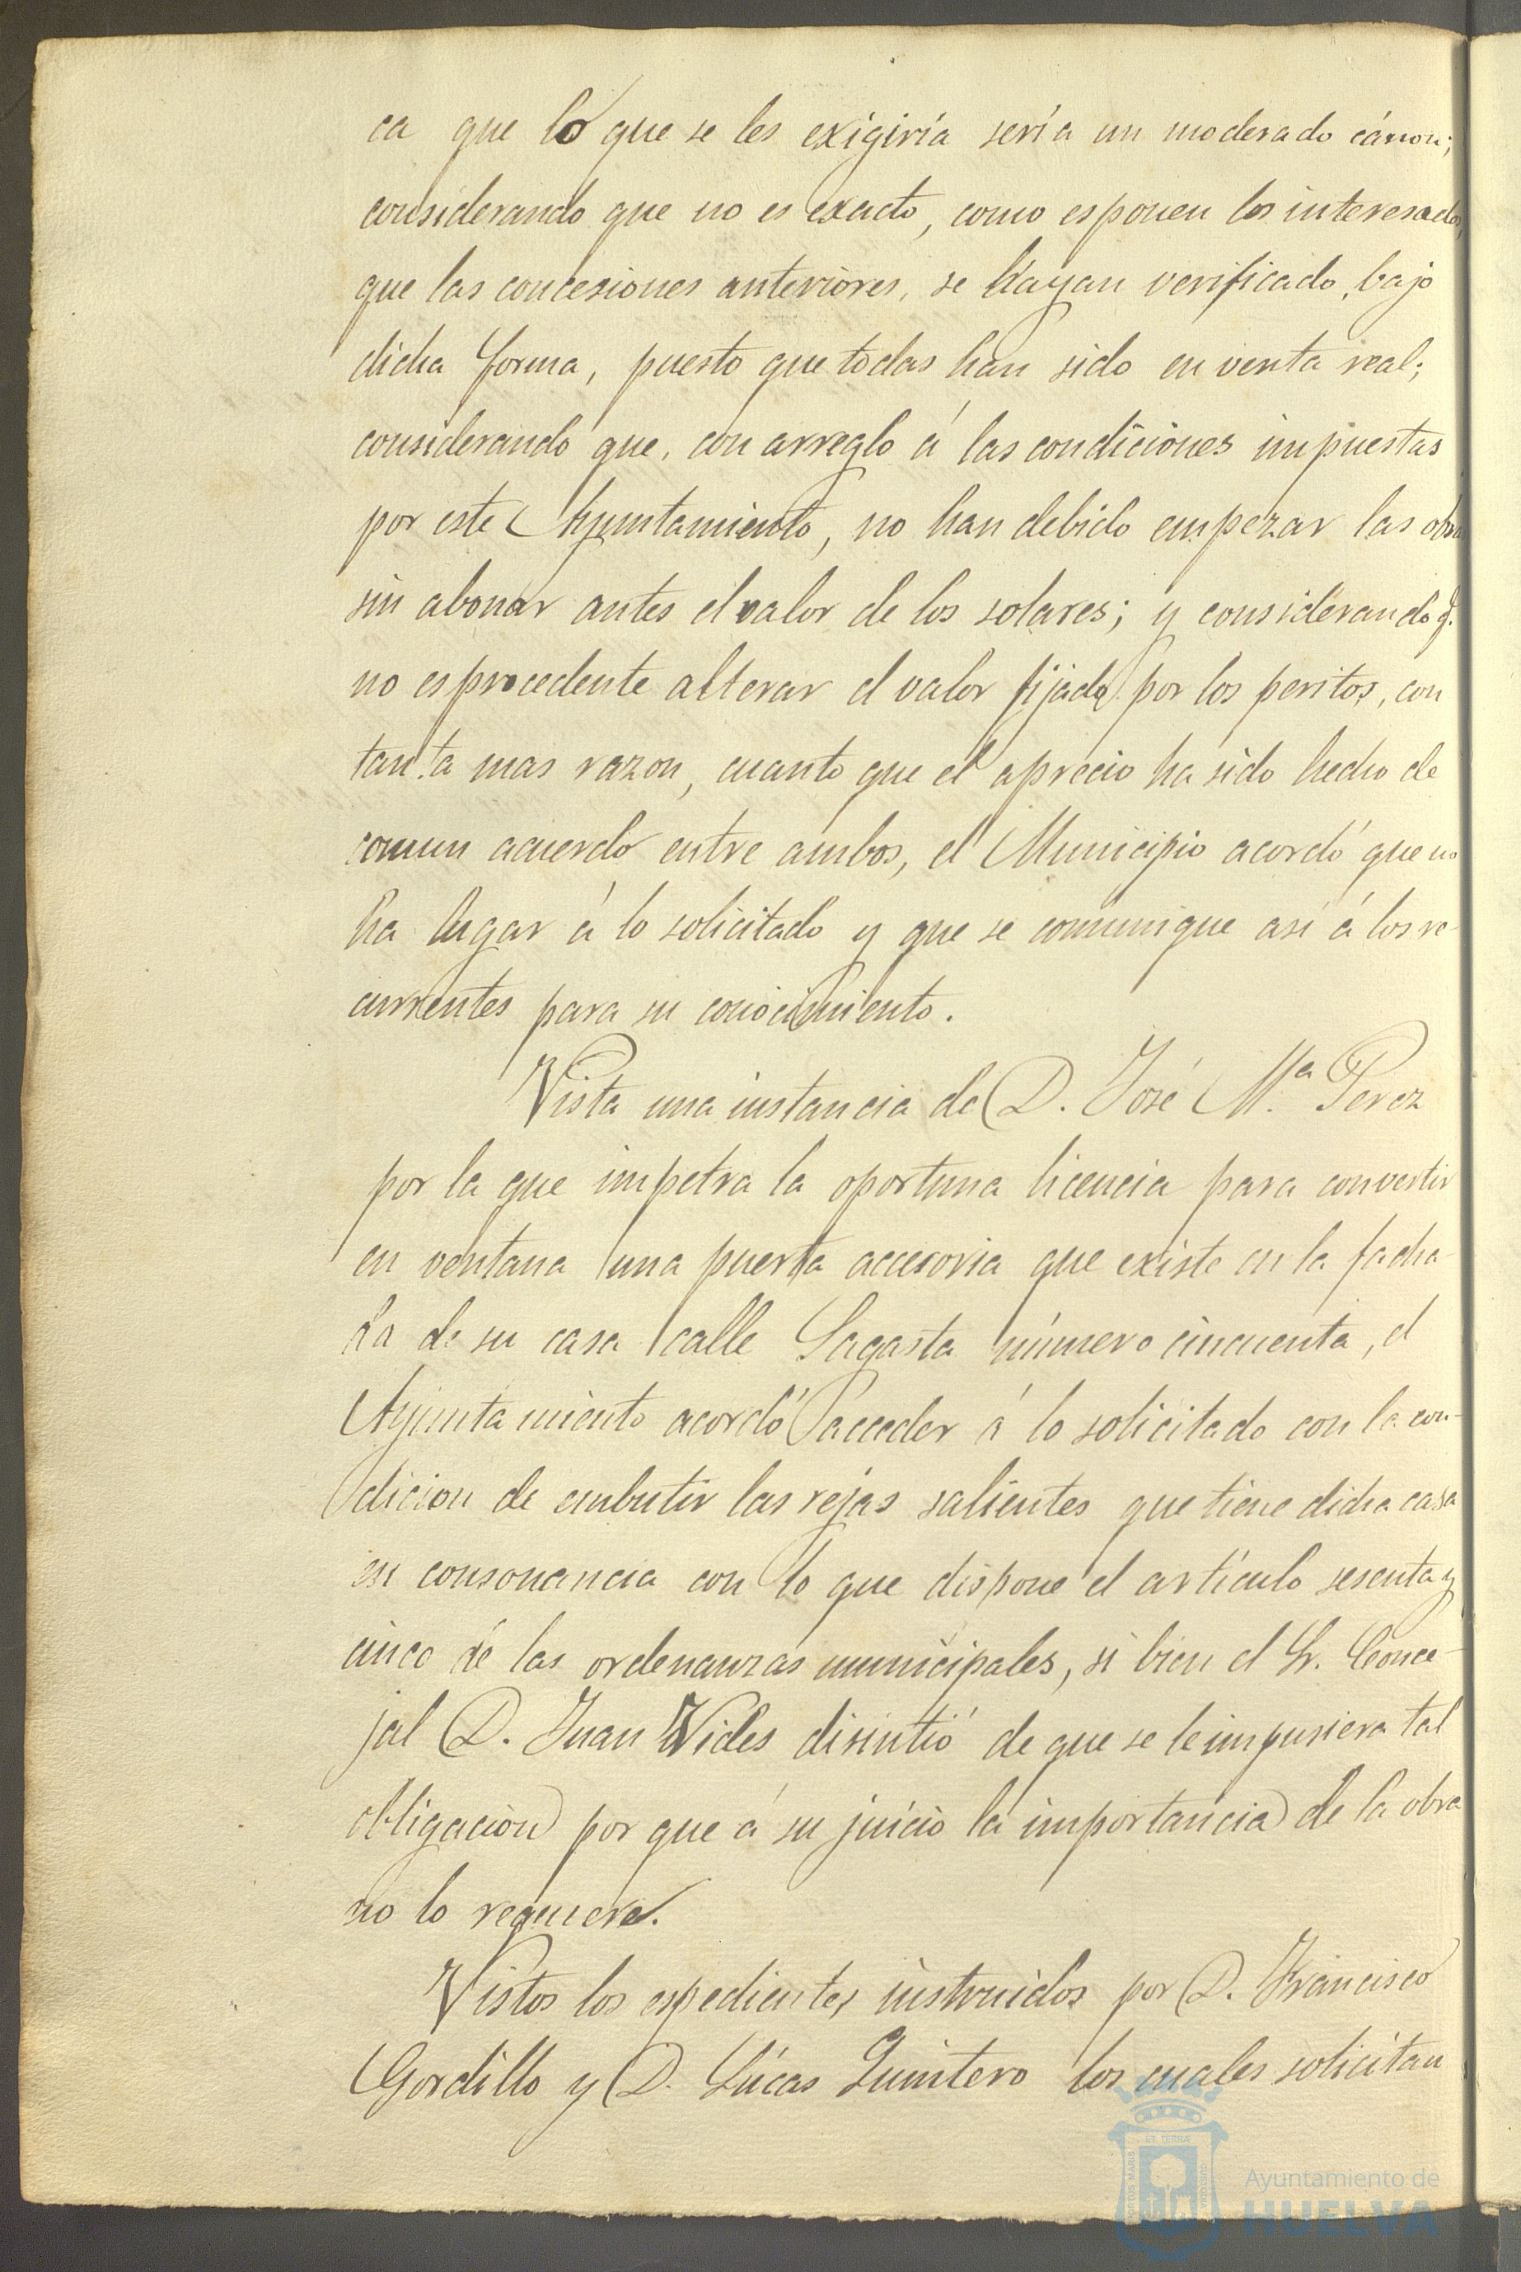 ca que lo que se les exigiría sería un moderado cánon;
considerando que no es exacto, como esponen los interesados,
que las concesiones anteriores, se háyan verificado, bajo
dicha forma, puesto que todas han sido en venta real;
considerando que, con arreglo á las condiciones impuestas
por este Ayuntamiento, no han debido empezar las obras
sin abonar antes el valor de los solares; y considerando q.
no es procedente alterar el valor fijado por los peritos, con
tanta mas razon, cuanto que el aprecio ha sido hecho de
comun acuerdo entre ambos, el Municipio acordó que no
ha lugar á lo solicitado y que se comunique así á los re-
currentes para su conocimiento.
Vista una instancia de D. José M.ª Perez
por la que impetra la oportuna licencia para convertir
en ventana una puerta accesoria que existe en la facha-
da de su casa calle Sagasta número cincuenta, el
Ayuntamiento acordó acceder á lo solicitado con la con-
dicion de embutir las rejas salientes que tiene dicha casa
en consonancia con lo que dispone el artículo sesenta y
cinco de las ordenanzas municipales, si bien el Sr. Conce-
jal D. Juan Vides disintió de que se le impusiera tal
obligacion por que á su juicio la importancia de la obra
no lo requiere.
Vistos los espedientes instruidos por D. Francisco
Gordillo y D. Lúcas Quintero los cuales solicitan
Ayuntamiento de
HUELVA